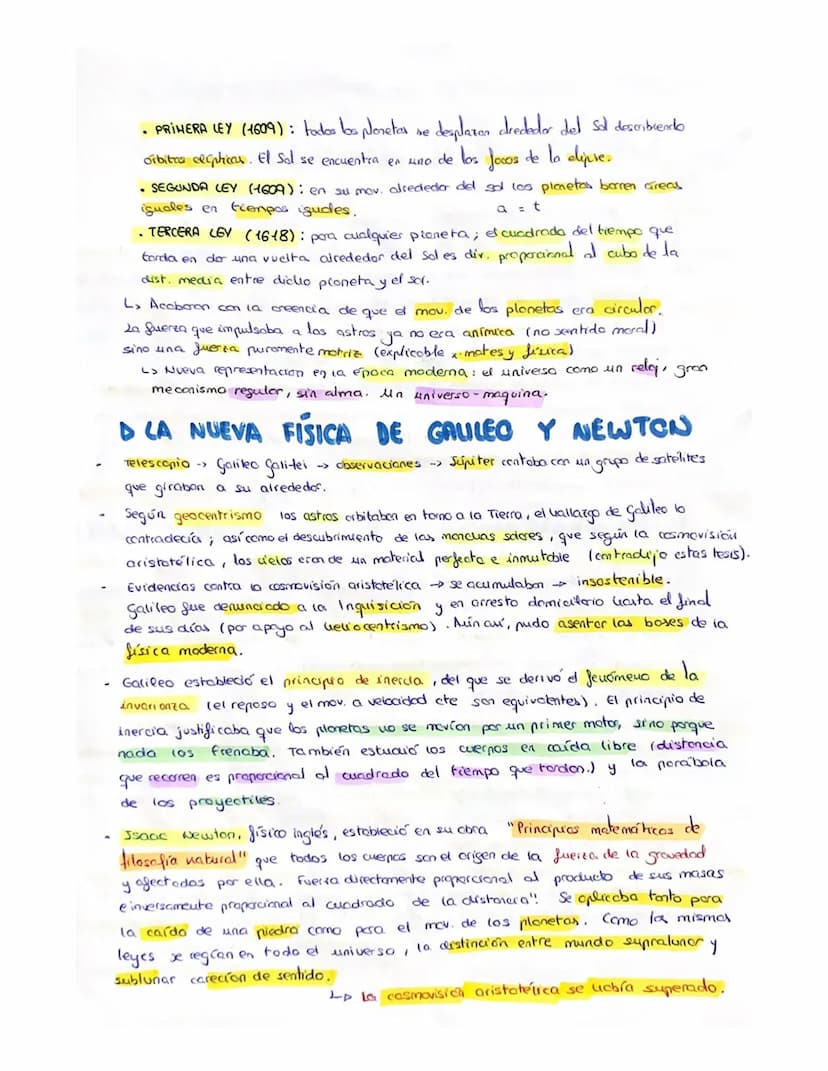 • PRIMERA LEY (1609): todos los planetas se desplazan alrededor del Sol describiendo
órbitas elípticas. El Sol se encuentra en uno de los focos de la elipse.
• SEGUNDA LEY (1609): en su mov. alrededor del sol los planetas barren áreas
iguales en tiempos iguales. a = t
• TERCERA LEY (1618): para cualquier planeta; el cuadrado del tiempo que
tarda en dar una vuelta alrededor del Sol es div. proporcional al cubo de la
dist. media entre dicho planeta y el sol.
↳ Acabaron con la creencia de que el mov. de los planetas era circular.
La fuerza que impulsaba a los astros ya no era anímica (no sentido moral)
sino una fuerza puramente motriz (explicable x mates y física)
↳ Nueva representación en la época moderna: el universo como un reloj, gran
mecanismo regular, sin alma. Un universo-maquina.
D LA NUEVA FÍSICA DE GALILEO Y NEWTON
- Telescopio -> Galileo Galilei -> observaciones -> Júpiter contaba con un grupo de satélites
que giraban a su alrededor.
- Según geocentrismo los astros orbitaban en torno a la Tierra, el hallazgo de Galileo lo
contradecía; así como el descubrimiento de las manchas solares, que según la cosmovisión
aristotélica, los cielos eran de un material perfecto e inmutable (contradijo estas tesis).
- Evidencias contra la cosmovisión aristotélica → se acumulaban → insostenible.
Galileo fue denunciado a la Inquisición y en arresto domiciliario hasta el final
de sus días (por apoyo al heliocentrismo). Aún así, pudo asentar las bases de la
física moderna.
- Galileo estableció el principio de inercia, del que se derivó el fenómeno de la
invarianza (el reposo y el mov. a velocidad cte son equivalentes). El principio de
inercia justificaba que los planetas no se movían por un primer motor, sino porque
nada los frenaba. También estudió los cuerpos en caída libre (distancia
que recorren es proporcional al cuadrado del tiempo que tardan.) y la parábola
de los proyectiles.
- Isaac Newton, físico inglés, estableció en su obra "Principios matemáticos de
filosofía natural" que todos los cuerpos son el origen de la fuerza de la gravedad
y afectados por ella. Fuerza directamente proporcional al producto de sus masas
e inversamente proporcional al cuadrado de la distancia". Se aplicaba tanto para
la caída de una piedra como para el mov. de los planetas. Como las mismas
leyes se regían en todo el universo, la distinción entre mundo supralunar y
sublunar carecían de sentido.
↳ La cosmovisión aristotélica se había superado.